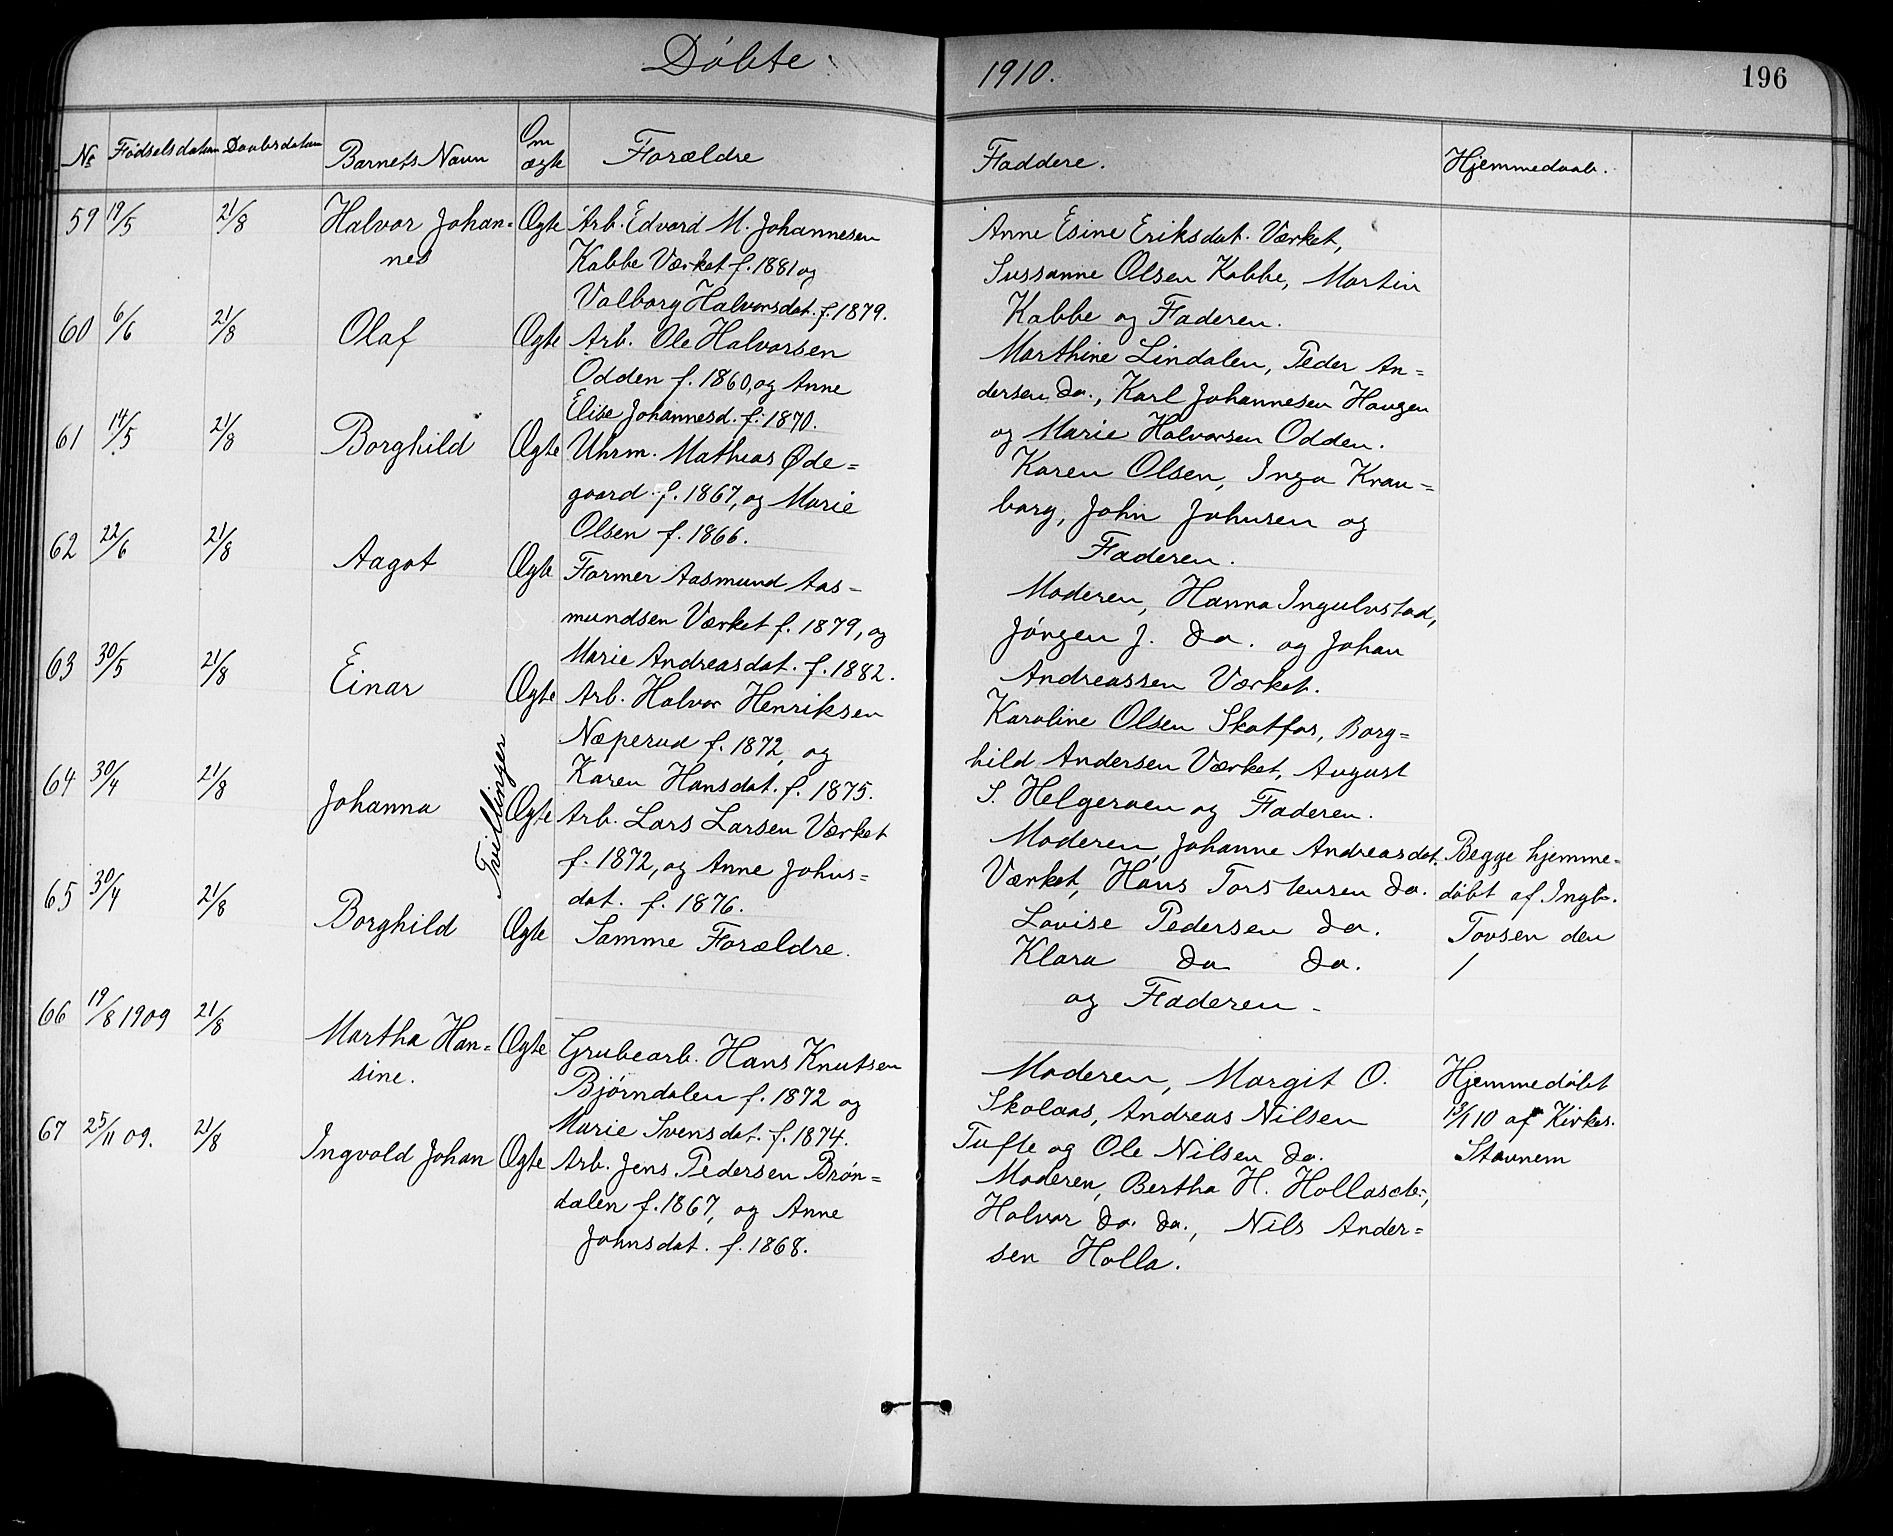 Döbte
1910.
196
No
Födselsdatum
Daabsdatum
Barnets Navn
Om ægte
Forældre
Faddere.
Hjemmedaab.
59 19/5 21/8 Halvor Johan= Ægte Arb. Edvard M. Johannesen
nes Kabbe Værket f. 1881 og
Valborg Halvorsdat. f. 1879.
Anne Esine Eriksdat. Værket,
Sussanne Olsen Kabbe, Martin
Kabbe og Faderen.
60 6/6 21/8 Olaf Ægte Arb. Ole Halvorsen
Odden f. 1860, og Anne
Elise Johannesd. f. 1870.
Marthine Lindalen, Peder An=
dersen do., Karl Johannesen Haugen
og Marie Halvorsen Odden.
61 14/5 21/8 Borghild Ægte Uhrm. Mathias Øde=
gaard f. 1867, og Marie
Olsen f. 1866.
Karen Olsen, Inga Krau=
borg, John Johnsen og
Faderen.
62 22/6 21/8 Aagot Ægte Former Aasmund Aas=
mundsen Værket f. 1879, og
Marie Andreasdat. f. 1882.
Moderen, Hanna Ingulvstad,
Jörgen J. do. og Johan
Andreassen Værket.
63 30/5 21/8 Einar Ægte Arb. Halvor Henriksen
Næperud f. 1872, og
Karen Hansdat. f. 1875.
Karoline Olsen Skotfos, Borg=
hild Andersen Værket, August
S. Helgeroen og Faderen.
Tvillinger
64 30/4 21/8 Johanna Ægte Arb. Lars Larsen Værket
f. 1872, og Anne Johns=
dat. f. 1876.
65 30/4 21/8 Borghild Ægte Samme Forældre.
Moderen, Johanne Andreasdat.
Værket, Hans Torstensen do.
Lovise Pedersen do.
Klara do do.
og Faderen.
Begge hjemme=
döbt af Ingb.
Tovsen den
/
66 19/8 1909 21/8 Martha Han= Ægte Grubearb. Hans Knutsen
sine. Bjørndalen f. 1872 og
Marie Svensdat. f. 1874.
Moderen, Margit O.
Skolaas, Andreas Nilsen
Tufte og Ole Nilsen do.
Hjemmedöbt
/1 10 af Kirkes.
Stavnem
67 25/11 09. 21/8 Ingvald Johan Ægte Arb. Jens Pedersen Brön=
dalen f. 1867, og Anne
Johnsdat. f. 1868.
Moderen, Bertha H. Hollasete,
Halvor do. do., Nils Ander=
sen Holla.